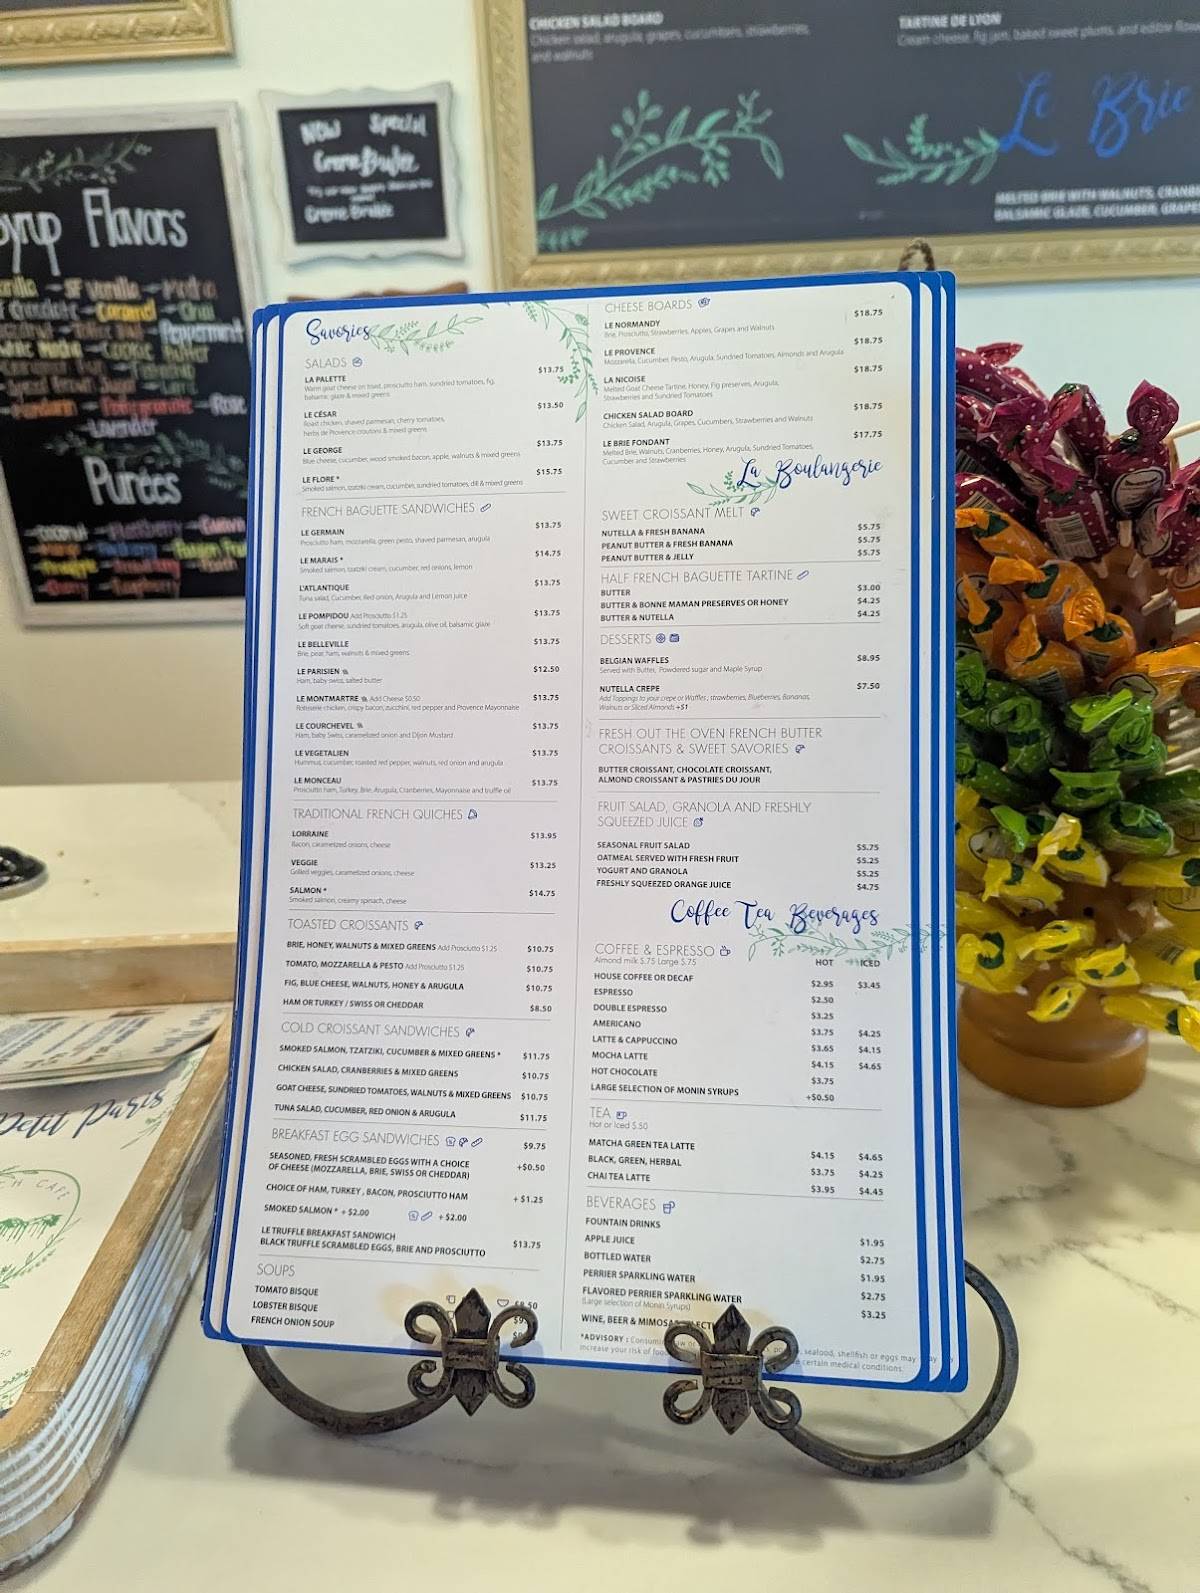 CHICKEN SALAD BOARD
Chicken salad, arugula, grapes, cucumbers, strawberries
and walnuts
TARTINE DE LYON
Cream cheese, fig jam, baked sweet plums, and edible
Le Brie
MELTED BRIE WITH WALNUTS,
BALSAMIC GLAZE, CUCUMBER,
NOW Special
Creme Brulee
Creme Brulee
Syrup Flavors
SF Vanilla
Caramel
Peppermint
Rose
Lavender
Purees
Petit Paris
Savories
SALADS
LA PALETTE $13.75
Warm goat cheese on toast, prosciutto ham, sundried tomatoes, fig,
balsamic glaze & mixed greens
LE CÉSAR $13.50
Roast chicken, shaved parmesan, cherry tomatoes,
herbs de Provence croutons & mixed greens
LE GEORGE $13.75
Blue cheese, cucumber, wood smoked bacon, apple, walnuts & mixed greens
LE FLORE * $15.75
Smoked salmon, tzatziki cream, cucumber, sundried tomatoes, dill & mixed greens
FRENCH BAGUETTE SANDWICHES
LE GERMAIN $13.75
Prosciutto ham, mozzarella, green pesto, shaved parmesan, arugula
LE MARAIS * $14.75
Smoked salmon, tzatziki cream, cucumber, red onions, lemon
L'ATLANTIQUE $13.75
Tuna salad, Cucumber, Red onion, Arugula and Lemon juice
LE POMPIDOU Add Prosciutto $1.25 $13.75
Soft goat cheese, sundried tomatoes, arugula, olive oil, balsamic glaze
LE BELLEVILLE $13.75
Brie, pear, ham, walnuts & mixed greens
LE PARISIEN $12.50
Ham, baby swiss, salted butter
LE MONTMARTRE Add Cheese $0.50 $13.75
Rotisserie chicken, crispy bacon, zucchini, red pepper and Provence Mayonnaise
LE COURCHEVEL $13.75
Ham, baby Swiss, caramelized onion and Dijon Mustard
LE VEGETALIEN $13.75
Hummus, cucumber, roasted red pepper, walnuts, red onion and arugula
LE MONCEAU $13.75
Prosciutto ham, Turkey, Brie, Arugula, Cranberries, Mayonnaise and truffle oil
TRADITIONAL FRENCH QUICHES
LORRAINE $13.95
Bacon, caramelized onions, cheese
VEGGIE $13.25
Grilled veggies, caramelized onions, cheese
SALMON * $14.75
Smoked salmon, creamy spinach, cheese
TOASTED CROISSANTS
BRIE, HONEY, WALNUTS & MIXED GREENS Add Prosciutto $1.25 $10.75
TOMATO, MOZZARELLA & PESTO Add Prosciutto $1.25 $10.75
FIG, BLUE CHEESE, WALNUTS, HONEY & ARUGULA $10.75
HAM OR TURKEY / SWISS OR CHEDDAR $8.50
COLD CROISSANT SANDWICHES
SMOKED SALMON, TZATZIKI, CUCUMBER & MIXED GREENS * $11.75
CHICKEN SALAD, CRANBERRIES & MIXED GREENS $10.75
GOAT CHEESE, SUNDRIED TOMATOES, WALNUTS & MIXED GREENS $10.75
TUNA SALAD, CUCUMBER, RED ONION & ARUGULA $11.75
BREAKFAST EGG SANDWICHES $9.75
SEASONED, FRESH SCRAMBLED EGGS WITH A CHOICE
OF CHEESE (MOZZARELLA, BRIE, SWISS OR CHEDDAR) +$0.50
CHOICE OF HAM, TURKEY, BACON, PROSCIUTTO HAM + $1.25
SMOKED SALMON * + $2.00 + $2.00
LE TRUFFLE BREAKFAST SANDWICH
BLACK TRUFFLE SCRAMBLED EGGS, BRIE AND PROSCIUTTO $13.75
SOUPS
TOMATO BISQUE $8.50
LOBSTER BISQUE
FRENCH ONION SOUP
CHEESE BOARDS
LE NORMANDY $18.75
Brie, Prosciutto, Strawberries, Apples, Grapes and Walnuts
LE PROVENCE $18.75
Mozzarella, Cucumber, Pesto, Arugula, Sundried Tomatoes, Almonds and Arugula
LA NICOISE $18.75
Melted Goat Cheese Tartine, Honey, Fig preserves, Arugula,
Strawberries and Sundried Tomatoes
CHICKEN SALAD BOARD $18.75
Chicken Salad, Arugula, Grapes, Cucumbers, Strawberries and Walnuts
LE BRIE FONDANT $17.75
Melted Brie, Walnuts, Cranberries, Honey, Arugula, Sundried Tomatoes,
Cucumber and Strawberries
La Boulangerie
SWEET CROISSANT MELT
NUTELLA & FRESH BANANA $5.75
PEANUT BUTTER & FRESH BANANA $5.75
PEANUT BUTTER & JELLY $5.75
HALF FRENCH BAGUETTE TARTINE
BUTTER $3.00
BUTTER & BONNE MAMAN PRESERVES OR HONEY $4.25
BUTTER & NUTELLA $4.25
DESSERTS
BELGIAN WAFFLES $8.95
Served with Butter, Powdered sugar and Maple Syrup
NUTELLA CREPE $7.50
Add Toppings to your crepe or Waffles ; strawberries, Blueberries, Bananas,
Walnuts or Sliced Almonds +$1
FRESH OUT THE OVEN FRENCH BUTTER
CROISSANTS & SWEET SAVORIES
BUTTER CROISSANT, CHOCOLATE CROISSANT,
ALMOND CROISSANT & PASTRIES DU JOUR
FRUIT SALAD, GRANOLA AND FRESHLY
SQUEEZED JUICE
SEASONAL FRUIT SALAD $5.75
OATMEAL SERVED WITH FRESH FRUIT $5.25
YOGURT AND GRANOLA $5.25
FRESHLY SQUEEZED ORANGE JUICE $4.75
Coffee Tea Beverages
COFFEE & ESPRESSO
Almond milk $.75 Large $.75 HOT ICED
HOUSE COFFEE OR DECAF $2.95 $3.45
ESPRESSO $2.50
DOUBLE ESPRESSO $3.25
AMERICANO $3.75 $4.25
LATTE & CAPPUCCINO $3.65 $4.15
MOCHA LATTE $4.15 $4.65
HOT CHOCOLATE $3.75
LARGE SELECTION OF MONIN SYRUPS +$0.50
TEA
Hot or Iced $.50
MATCHA GREEN TEA LATTE $4.15 $4.65
BLACK, GREEN, HERBAL $3.75 $4.25
CHAI TEA LATTE $3.95 $4.45
BEVERAGES
FOUNTAIN DRINKS $1.95
APPLE JUICE $2.75
BOTTLED WATER $1.95
PERRIER SPARKLING WATER $2.75
FLAVORED PERRIER SPARKLING WATER $3.25
(Large selection of Monin Syrups)
WINE, BEER & MIMOSA
*ADVISORY : seafood, shellfish or eggs may
increase your risk of certain medical conditions.